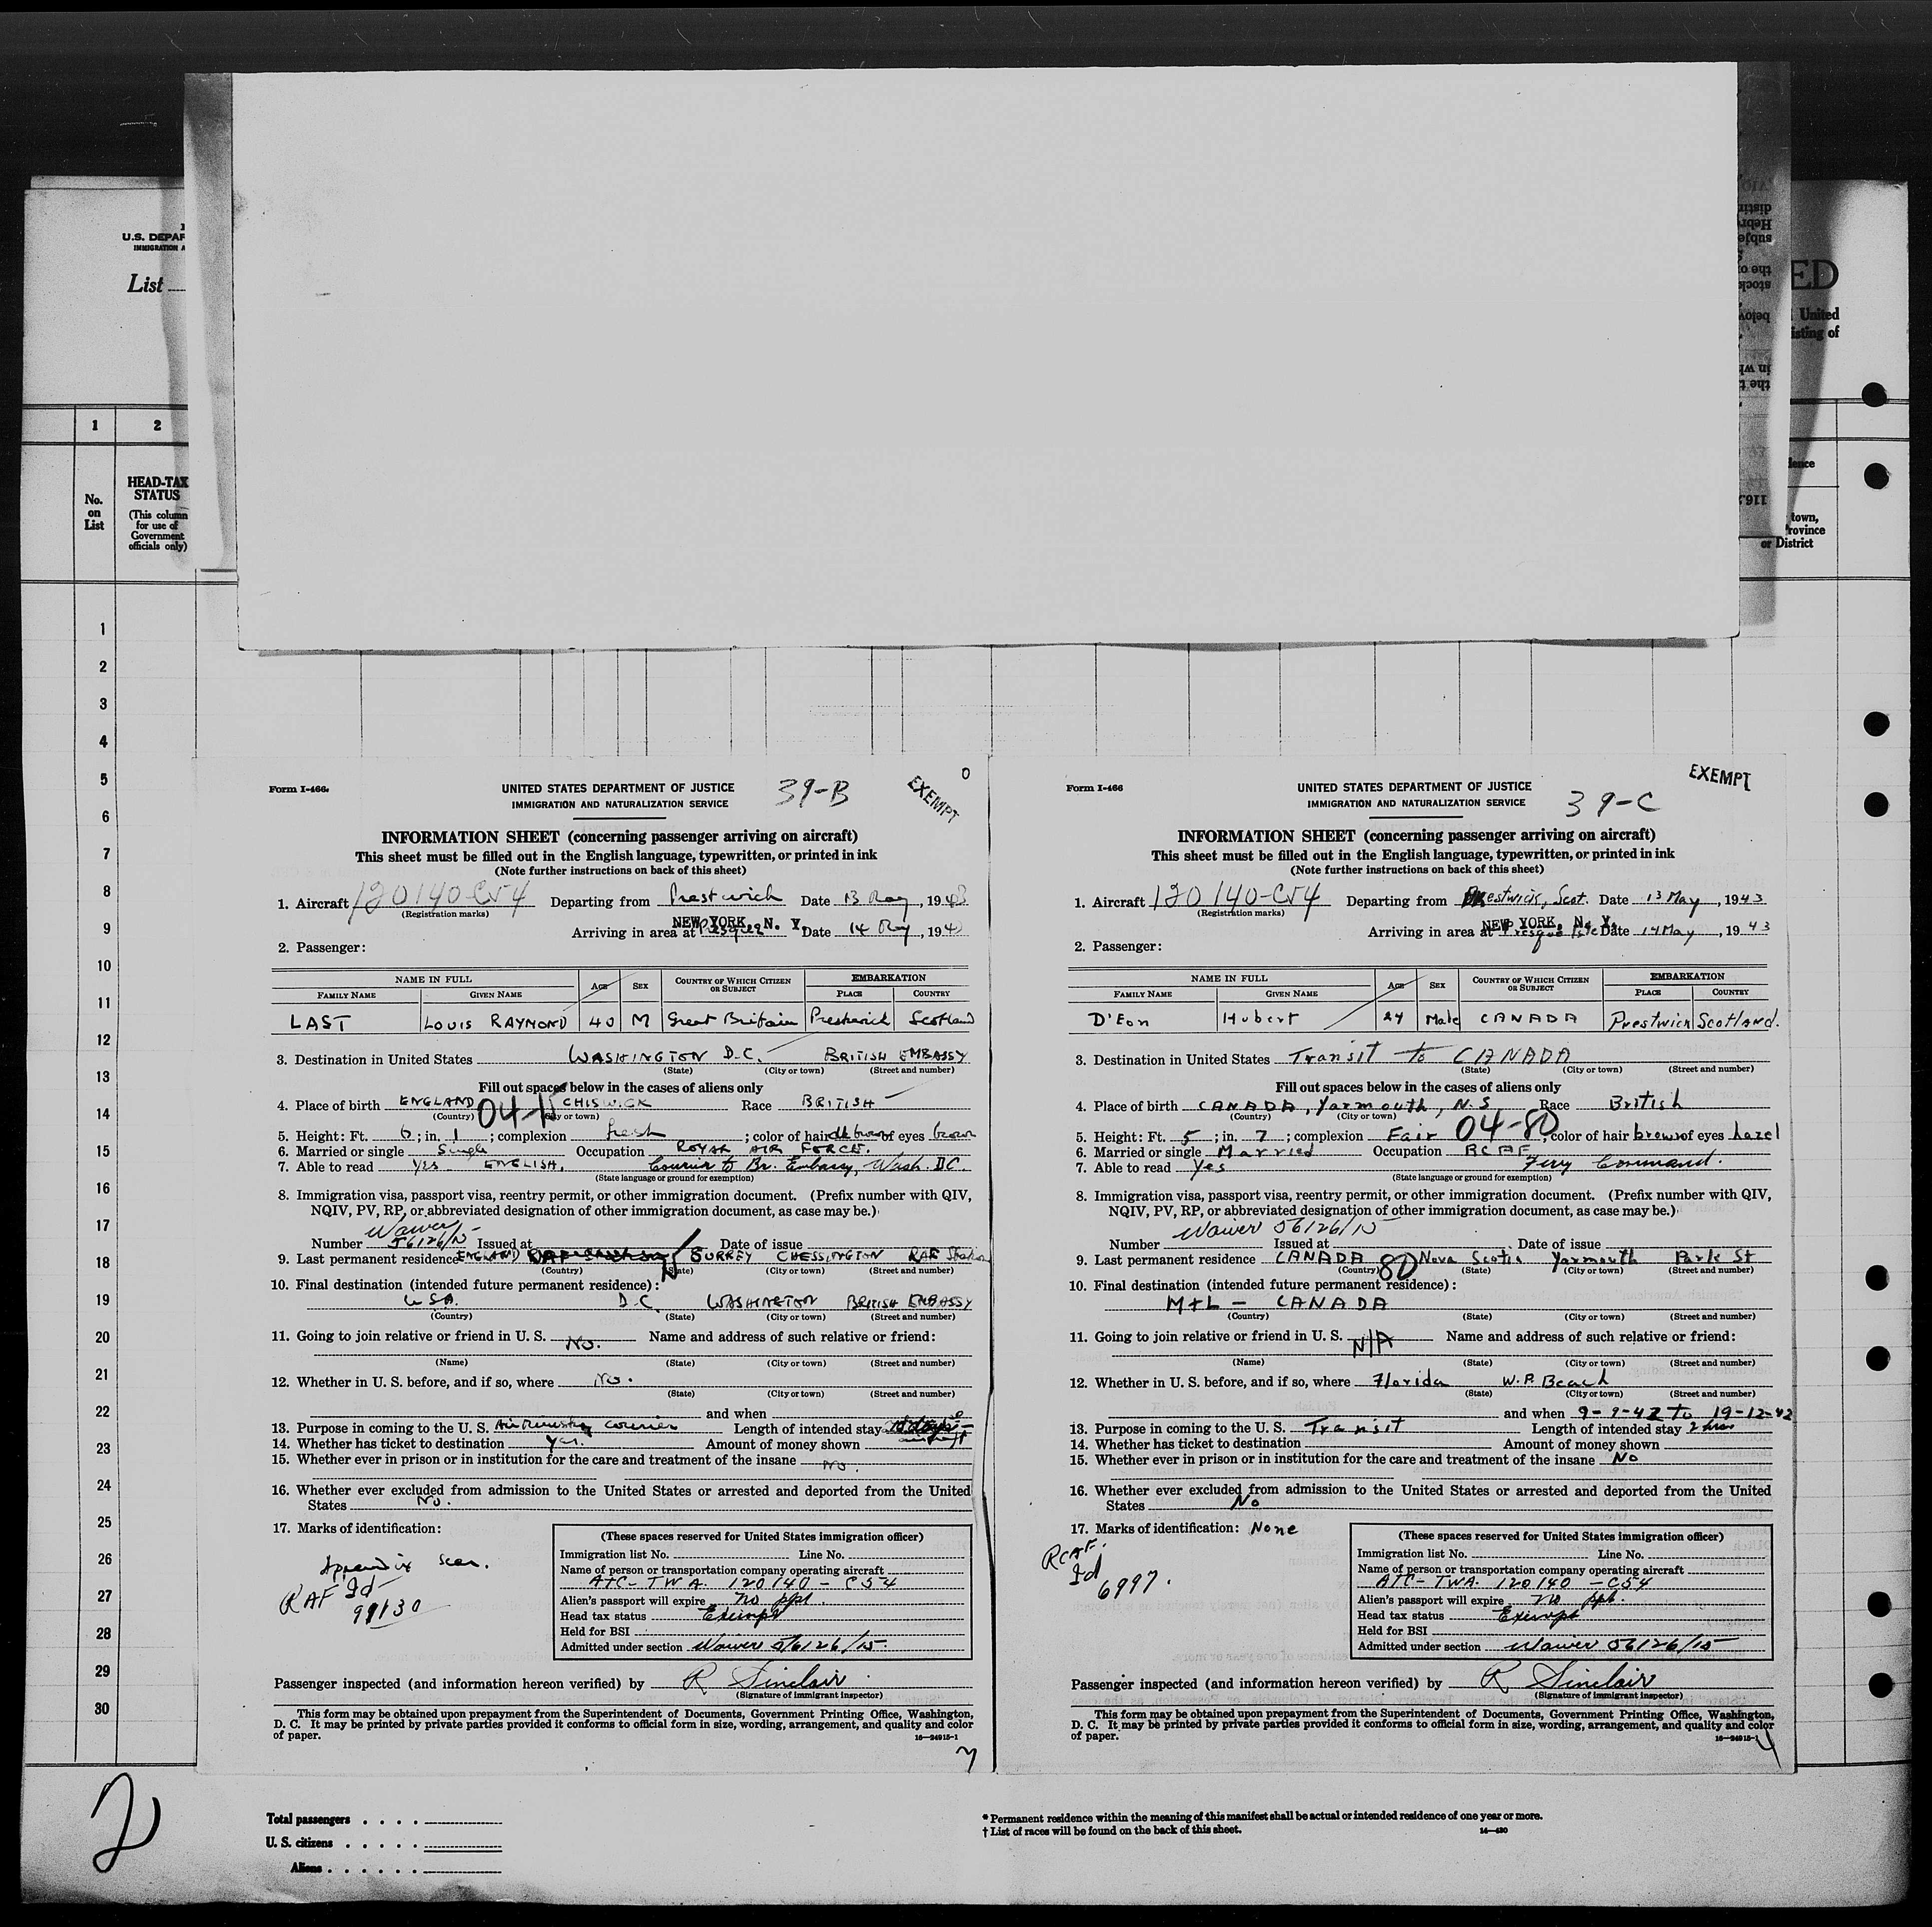 U.S. DEPAR
IMMIGRATION A
List
ED
United
isting of
1 2
No.
on
List
HEAD-TAX
STATUS
(This column
for use of
Government
officials only)
town,
Province
or District
1
2
3
4
5
6
7
8
9
10
11
12
13
14
15
16
17
18
19
20
21
22
23
24
25
26
27
28
29
30
Form I-466
UNITED STATES DEPARTMENT OF JUSTICE
39-B
EXEMPT
IMMIGRATION AND NATURALIZATION SERVICE
INFORMATION SHEET (concerning passenger arriving on aircraft)
This sheet must be filled out in the English language, typewritten, or printed in ink
(Note further instructions on back of this sheet)
1. Aircraft 120140-C54 Departing from Prestwick Date 13 May, 1943
(Registration marks)
NEW YORK, N. Y.
Arriving in area at Date 14 May, 1943
2. Passenger:
NAME IN FULL AGE SEX COUNTRY OF WHICH CITIZEN OR SUBJECT EMBARKATION
FAMILY NAME GIVEN NAME PLACE COUNTRY
LAST LOUIS RAYMOND 40 M Great Britain Prestwick Scotland
3. Destination in United States WASHINGTON D.C. BRITISH EMBASSY
(State) (City or town) (Street and number)
Fill out spaces below in the cases of aliens only
4. Place of birth ENGLAND CHISWICK Race BRITISH
(Country) (City or town)
5. Height: Ft. 6; in. 1; complexion fresh; color of hair dk brown of eyes brown
6. Married or single Single Occupation ROYAL AIR FORCE.
7. Able to read yes ENGLISH. Courier to Br. Embassy, Wash. DC.
(State language or ground for exemption)
8. Immigration visa, passport visa, reentry permit, or other immigration document. (Prefix number with QIV,
NQIV, PV, RP, or abbreviated designation of other immigration document, as case may be.)
Waiver
Number 56126/15 Issued at Date of issue
9. Last permanent residence ENGLAND SURREY CHESSINGTON RAF Station
(Country) (State) (City or town) (Street and number)
10. Final destination (intended future permanent residence):
USA. D.C. WASHINGTON BRITISH EMBASSY
(Country) (State) (City or town) (Street and number)
11. Going to join relative or friend in U. S. No. Name and address of such relative or friend:
(Name) (State) (City or town) (Street and number)
12. Whether in U. S. before, and if so, where No.
(State) (City or town) (Street and number)
and when
13. Purpose in coming to the U. S. Air Ministry courier Length of intended stay
14. Whether has ticket to destination yes. Amount of money shown
15. Whether ever in prison or in institution for the care and treatment of the insane No.
16. Whether ever excluded from admission to the United States or arrested and deported from the United
States No.
17. Marks of identification:
Appendix scar.
RAF Id
99130
(These spaces reserved for United States immigration officer)
Immigration list No. Line No.
Name of person or transportation company operating aircraft
ATC-TWA. 120140-C54
Alien's passport will expire no ppt.
Head tax status Exempt
Held for BSI
Admitted under section Waiver 56126/15
Passenger inspected (and information hereon verified) by R Sinclair
(Signature of immigrant inspector)
This form may be obtained upon prepayment from the Superintendent of Documents, Government Printing Office, Washington,
D. C. It may be printed by private parties provided it conforms to official form in size, wording, arrangement, and quality and color
of paper.
16—24915-1
Form I-466
UNITED STATES DEPARTMENT OF JUSTICE
39-C
EXEMPT
IMMIGRATION AND NATURALIZATION SERVICE
INFORMATION SHEET (concerning passenger arriving on aircraft)
This sheet must be filled out in the English language, typewritten, or printed in ink
(Note further instructions on back of this sheet)
1. Aircraft 120140-C54 Departing from Prestwick, Scot. Date 13 May, 1943
(Registration marks)
NEW YORK, N. Y.
Arriving in area at Presque Isle Date 14 May, 1943
2. Passenger:
NAME IN FULL AGE SEX COUNTRY OF WHICH CITIZEN OR SUBJECT EMBARKATION
FAMILY NAME GIVEN NAME PLACE COUNTRY
D'Eon Hubert 24 Male CANADA Prestwick Scotland.
3. Destination in United States Transit to CANADA
(State) (City or town) (Street and number)
Fill out spaces below in the cases of aliens only
4. Place of birth CANADA, Yarmouth, N.S Race British
(Country) (City or town)
04-80
5. Height: Ft. 5; in. 7; complexion Fair; color of hair brown of eyes hazel
6. Married or single Married Occupation RCAF
7. Able to read Yes Ferry Command.
(State language or ground for exemption)
8. Immigration visa, passport visa, reentry permit, or other immigration document. (Prefix number with QIV,
NQIV, PV, RP, or abbreviated designation of other immigration document, as case may be.)
Waiver 56126/15
Number Issued at Date of issue
9. Last permanent residence CANADA 80 Nova Scotia Yarmouth Park St
(Country) (State) (City or town) (Street and number)
10. Final destination (intended future permanent residence):
MTL - CANADA
(Country) (State) (City or town) (Street and number)
11. Going to join relative or friend in U. S. N/A Name and address of such relative or friend:
(Name) (State) (City or town) (Street and number)
12. Whether in U. S. before, and if so, where Florida W.P. Beach
(State) (City or town) (Street and number)
and when 9-9-42 To 19-12-42
13. Purpose in coming to the U. S. Transit Length of intended stay 2 hrs
14. Whether has ticket to destination Amount of money shown
15. Whether ever in prison or in institution for the care and treatment of the insane No
16. Whether ever excluded from admission to the United States or arrested and deported from the United
States No
17. Marks of identification: None
RCAF.
Id
6997.
(These spaces reserved for United States immigration officer)
Immigration list No. Line No.
Name of person or transportation company operating aircraft
ATC-TWA. 120140-C54
Alien's passport will expire no ppt.
Head tax status Exempt
Held for BSI
Admitted under section Waiver 56126/15
Passenger inspected (and information hereon verified) by R Sinclair
(Signature of immigrant inspector)
This form may be obtained upon prepayment from the Superintendent of Documents, Government Printing Office, Washington,
D. C. It may be printed by private parties provided it conforms to official form in size, wording, arrangement, and quality and color
of paper.
16—24915-1
2
Total passengers
U. S. citizens
Aliens
* Permanent residence within the meaning of this manifest shall be actual or intended residence of one year or more.
† List of races will be found on the back of this sheet.